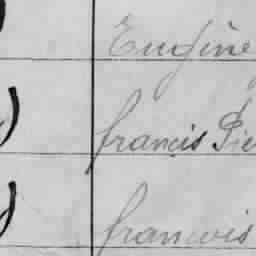 Eugène
francis Pie
francois